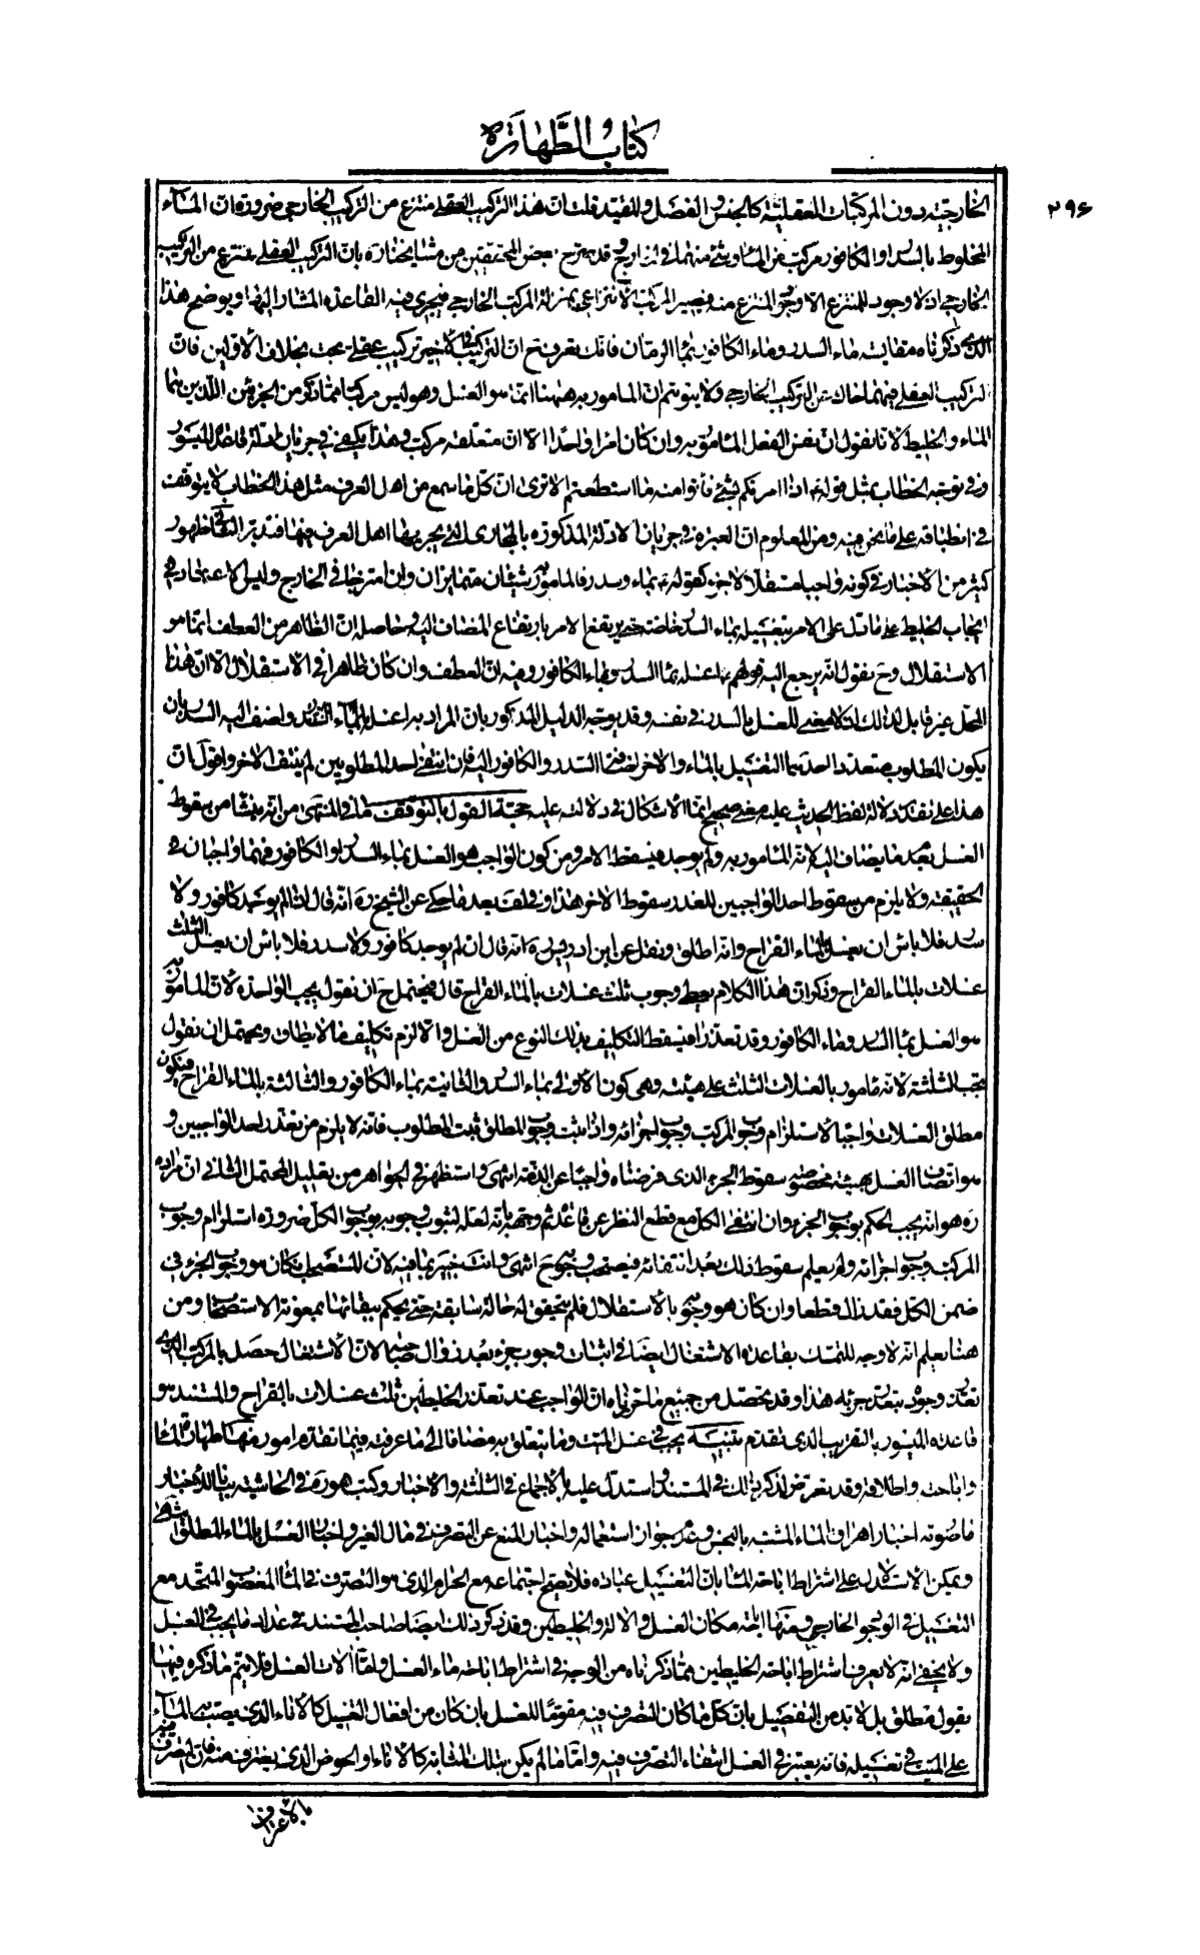 كتاب الطهارة
٢٩۶
الخارجية دون المركبات العقلية كالجنس والفصل والمقيد قلت ان هذا التركيب العقلى منتزع من التركيب الخارجى ضرورة ان الماء
المخلوط بالسدر او الكافور مركب من الماء وشئ منهما فى الخارج وقد صرح بعض المحققين من مشايخنا ره بان التركيب العقلى منتزع من التركيب
الخارجى اذ لا وجود للمنتزع الا وجود المنتزع منه فيصير المركب الانتزاعى بمنزلة المركب الخارجى فيجرى فيه القاعدة المشار اليها ويوضح هذا
الذى ذكرناه مقايسة ماء السدر وماء الكافور بماء الرمان فانك تعرف ح ان التركيب فى الاخير تركيب عقلى بحت بخلاف الاولين فان
التركيب العقلى فيهما حاك عن التركيب الخارجى ولا يتوهم ان المامور به هيهنا انما هو الغسل وهو ليس مركبا مما ذكر من الجزئين اللذين هما
الماء والخليط لانا نقول ان نفس الفعل المامور به وان كان امرا واحدا الا ان متعلقه مركب وهذا يكفى فى جريان ادلة قاعدة الميسور
وفى توجه الخطاب بمثل قوله ع اذا امرتكم بشئ فأتوا منه ما استطعتم الا ترى ان كل من سمع من اهل العرف مثل هذا الخطاب لا يتوقف
فى انطباقه على ما نحن فيه ومن المعلوم ان العبرة فى جريان الادلة المذكورة بالمجارى التى يجريها اهل العرف فيها فتدبر الثانى ظهور
كثير من الاخبار فى كونه واجبا مستقلا لا جزء كقوله ع بماء وسدر فالمامور به شيئان متمايزان وان امتزجا فى الخارج وليس الاعتماد فى
ايجاب الخليط على ما دل على الامر بتغسيله بماء السدر خاصة حتى يرتفع الامر بارتفاع المضاف اليه وحاصله ان الظاهر من العطف انما هو
الاستقلال وح نقول انه يرجع اليه قولهم ع اغسله بماء السدر وبماء الكافور وفيه ان العطف وان كان ظاهرا فى الاستقلال الا ان هذا
المحل غير قابل لذلك اذ لا معنى للغسل بالسدر فى نفسه وقد يوجه الدليل المذكور بان المراد به اغسل بالماء القدر واضف اليه السدر بان
يكون المطلوب متعددا احدهما التغسيل بالماء والاخر اضافة السدر والكافور اليه فان انتفى احد المطلوبين لم ينتف الاخر واقول ان
هذا على تقدير دلالة لفظ الحديث عليه معنى صحيح انما الاشكال فى دلالته عليه حجة القول بالتوقف ما فى المنتهى من انه ينشأ من سقوط
الغسل بعد ما يضاف اليه لانه المامور به ولم يوجد فيسقط الامر ومن كون الواجب هو الغسل بماء السدر او الكافور فهما واجبان فى
الحقيقة ولا يلزم من سقوط احد الواجبين للعذر سقوط الاخر هذا وفى لف بعد ما حكى عن الشيخ ره انه قال اذا لم يوجد كافور ولا
سدر فلا بأس ان يغسل بالماء القراح وانه اطلق ونقل عن ابن ادريس ره انه قال ان لم يوجد كافور ولا سدر فلا باس ان يغسل الثلث
غسلات بالماء القراح وذكر ان هذا الكلام يعطى وجوب ثلث غسلات بالماء القراح قال فيحتمل ح ان نقول يجب الواحدة لان المامور به
هو الغسل بماء السدر وماء الكافور وقد تعذرا فيسقط التكليف بذلك النوع من الغسل والا لزم تكليف ما لا يطاق ويحتمل ان نقول
يجب الثلثة لانه مامور بالغسلات الثلث على هيئة وهى كون الاولى بماء السدر والثانية بماء الكافور والثالثة بالماء القراح فيكون
مطلق الغسلات واجبا لاستلزام وجوب المركب وجوب اجزائه واذا ثبت وجوب المطلق ثبت المطلوب فانه لا يلزم من تعذر احد الواجبين و
هو اتصاف الغسل بهيئة مخصوصة سقوط الجزء الذى فرضناه واجبا عن الذمة انتهى واستظهر فى الجواهر من تعليل المحتمل الثانى ان مراده
ره هو انه يجب الحكم بوجوب الجزء وان انتفى الكل مع قطع النظر عن قاعدة ثم وجهه بانه لعله لثبوت وجوبه بوجوب الكل ضرورة استلزام وجوب
المركب وجوب اجزائه ولم يعلم سقوط ذلك بعد انتفائه فيستصحب وجوبه ح انتهى وانت خبير بما فيه لان المستصحب ان كان هو وجوب الجزء فى
ضمن الكل فقد زال قطعا وان كان هو وجوبه بالاستقلال فلم يتحقق له حالة سابقة حتى يحكم ببقائها بمعونة الاستصحاب ومن
هنا يعلم انه لا وجه للتمسك بقاعدة الاشتغال ايضا فى اثبات وجوب جزء بعد زوال صاحبه لان الاشتغال حصل بالمركب الذى
تعذر وجوده بتعذر جزئه هذا وقد تحصل من جميع ما حررناه ان الواجب عند تعذر الخليطين ثلث غسلات بالقراح والمستند هو
قاعدة الميسور بالتقريب الذى تقدم تنبيه يجب فى غسل الميت وما يتعلق به مضافا الى ما عرفت فيما تقدم امور منها طهارة الماء
واباحته واطلاقه وقد تعرض لذكر ذلك فى المستند واستدل عليه بالاجماع فى الثلثة والاخبار وكتب هو ره فى الحاشية بيانا للاخبار
ما صورته اخبار اهراق الماء المشتبه بالنجس وعدم جواز استعماله واخبار المنع عن التصرف فى مال الغير واخبار الغسل بالماء المطلق انتهى
ويمكن الاستدلال على اشتراط اباحة الماء بان التغسيل عبادة فلا يصح اجتماعه مع الحرام الذى هو التصرف فى الماء المغصوب المتحد مع
التغسيل فى الوجود الخارجى ومنها اباحة مكان الغسل والالة والخليطين وقد ذكر ذلك ايضا صاحب المستند فى عداد ما يجب فى الغسل
ولا يخفى انه لا يعرف اشتراط اباحة الخليطين مما ذكرناه من الوجه فى اشتراط اباحة ماء الغسل واما الات الغسل فلا يتم ما ذكره فيها
بقول مطلق بل لا بد من التفصيل بان كل ما كان التصرف فيه مقوما للغسل بان كان من افعال الغسل كالاناء الذى يصب به الماء
على الميت فى تغسيله فانه يعتبر فى الغسل انتفاء التصرف فيه واما ما لم يكن بتلك المثابة كالاناء والحوض الذى يغترف منه فان التصرف فيه
بالاغتراف